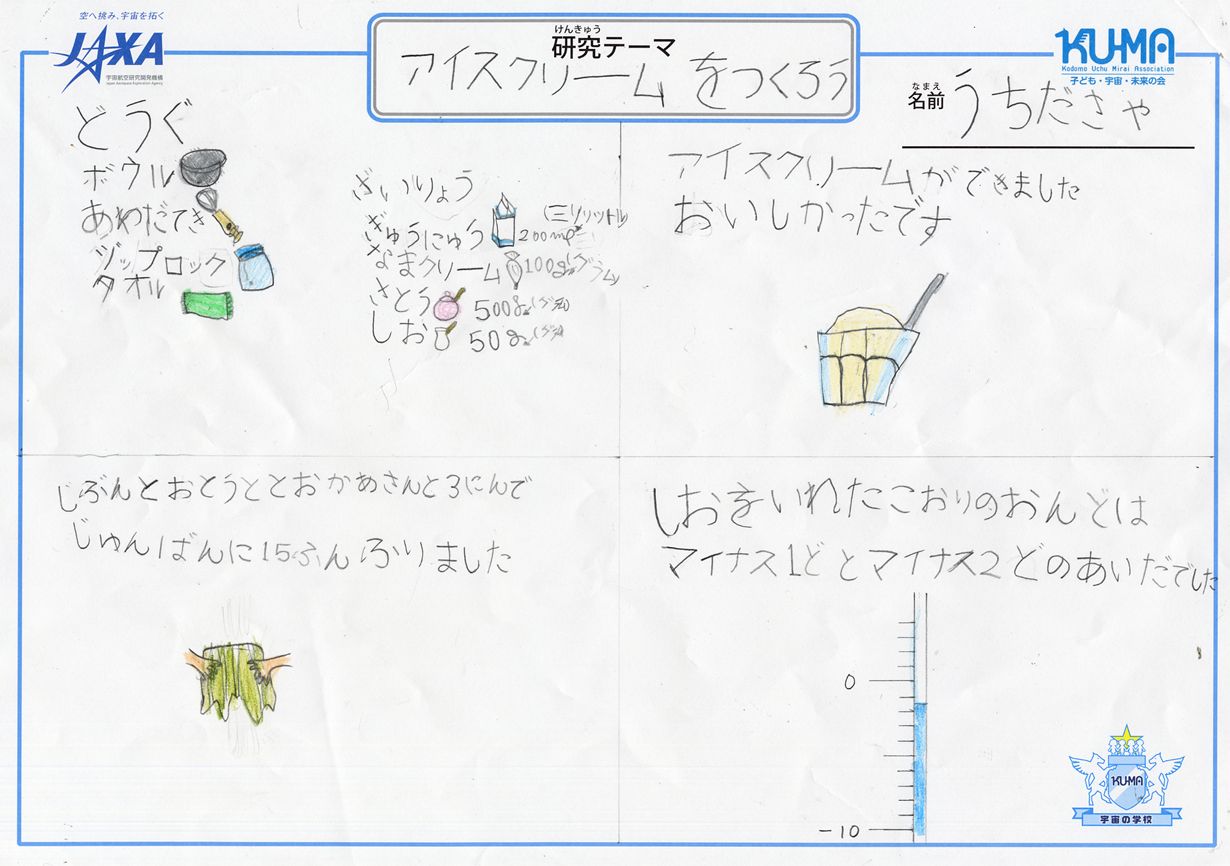 空へ挑み、宇宙を拓く
JAXA
宇宙航空研究開発機構
Japan Aerospace Exploration Agency
けんきゅう
研究テーマ
アイスクリームをつくろう
KU-MA
Kodomo Uchu Mirai Association
子ども・宇宙・未来の会
なまえ
名前 うちださや
どうぐ
ボウル
あわだてき
ヅップロック
タオル
ざいりょう
ぎゅうにゅう 200ml (ミリリットル)
なまクリーム 100g (グラム)
さとう 500g
しお 50g
アイスクリームができました
おいしかったです
じぶんとおとうととおかあさんと3にんで
じゅんばんに15ふんふりました
しおをいれたこおりのおんどは
マイナス1どとマイナス2どのあいだでした
0
-10
KUMA
宇宙の学校